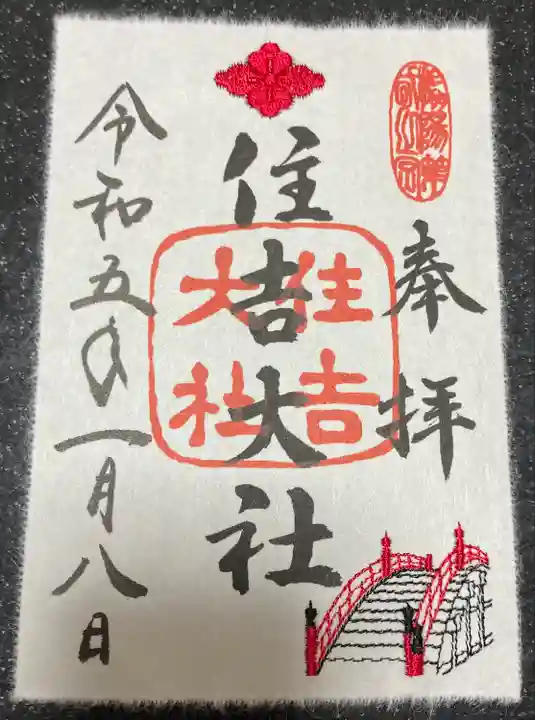 奉拝
住吉大社
住吉
大社
令和五年一月八日